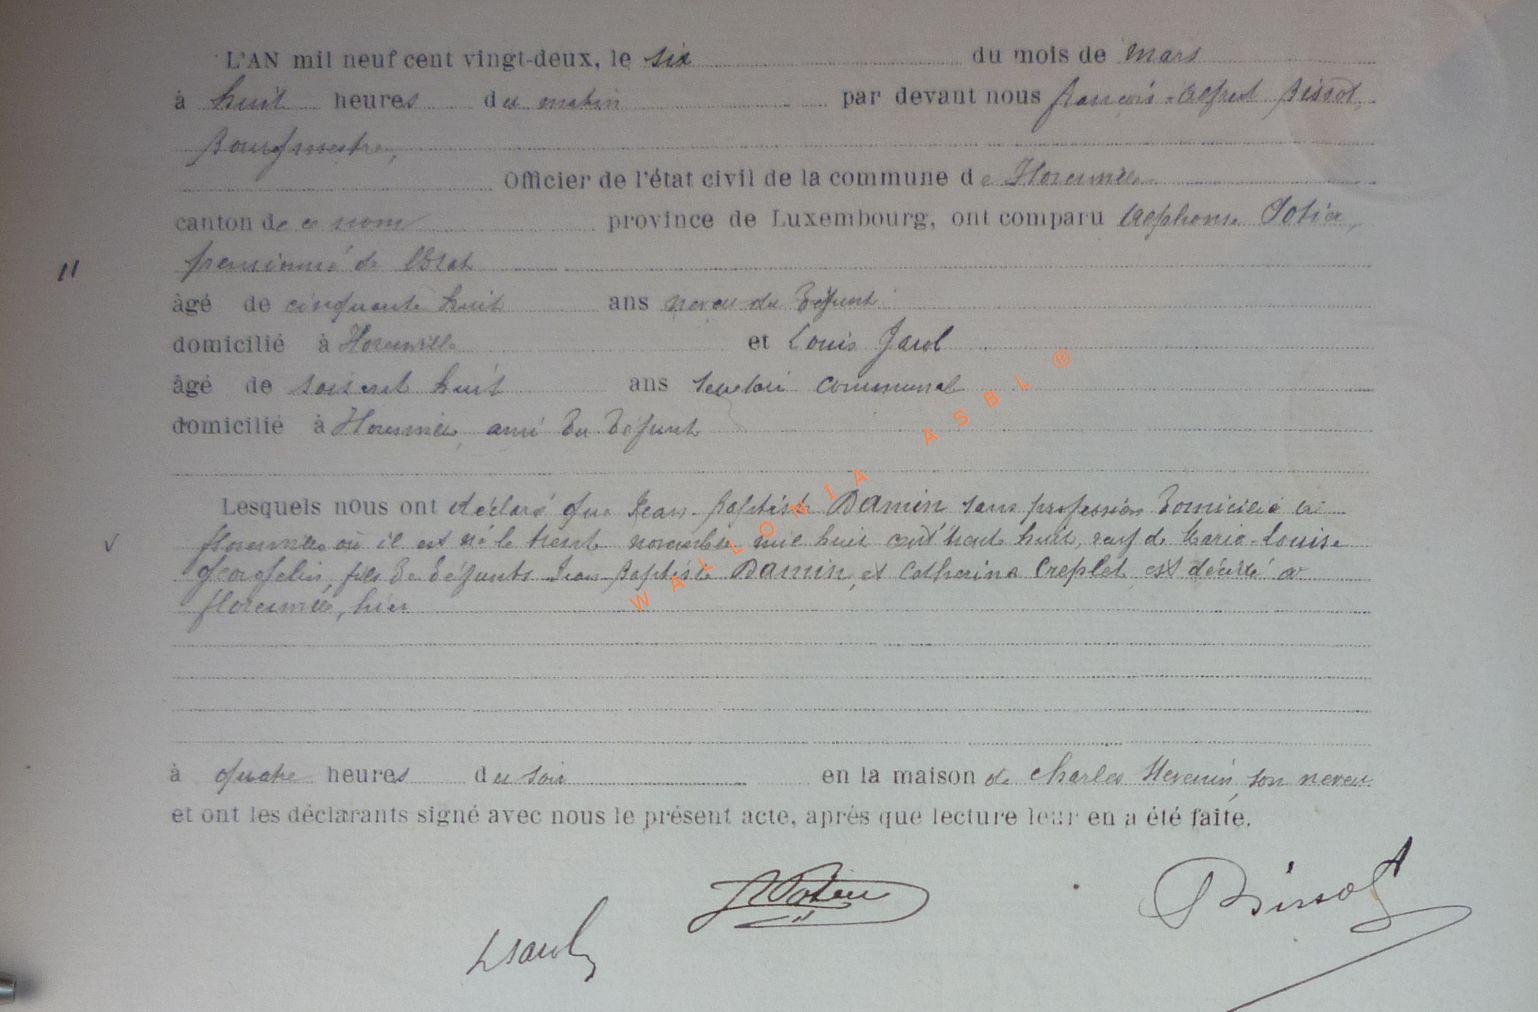 L'AN mil neuf cent vingt-deux, le six du mois de mars
à huit heures du matin par devant nous François-Alfred Bissot,
Bourgmestre,
Officier de l'état civil de la commune de Florenville
canton de ce nom province de Luxembourg, ont comparu Alphonse Potier,
pensionné de l'Etat
11
âgé de cinquante huit ans neveu du défunt
domicilié à Florenville et Louis Jacob
âgé de soixant huit ans secrétaire communal
domicilié à Florenville, ami du défunt
Lesquels nous ont déclaré que Jean-Baptiste DAMIN sans profession domicilié à
Florenville où il est né le trente novembre mil huit cent trente huit, veuf de Marie-Louise
fils de défunts Jean-Baptiste DAMIN, et Catherine Creplet est décédé à
Florenville, hier
à quatre heures du soir en la maison de Charles son neveu
et ont les déclarants signé avec nous le présent acte, après que lecture leur en a été faite.
Potier
Bissot
WALLONIA ASBL ®